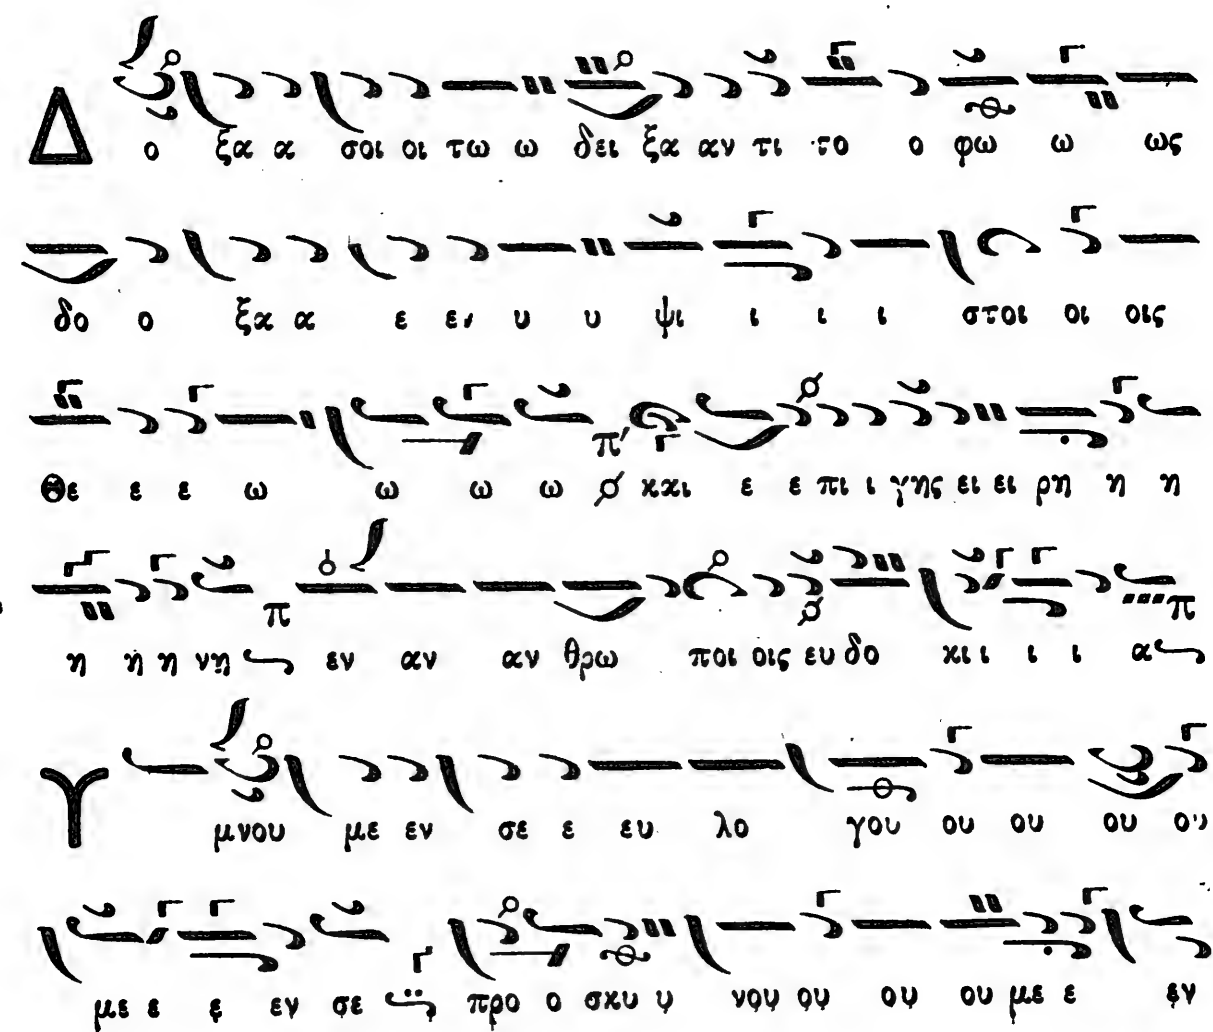 Δ ο ξα α σοι οι τω ω δει ξα αν τι το ο φω ω ως
δο ο ξα α ε εν υ υ ψι ι ι ι στοι οι οις
Θε ε ε ω ω ω ω π' και ε ε πι ι γης ει ει ρη η η
η η η νη π εν αν αν θρω ποι οις ευ δο κι ι ι ι α π
Υ μνου με εν σε ε ευ λο γου ου ου ου ου
με ε ε εν σε προ ο σκυ υ νου ου ου ου με ε εν